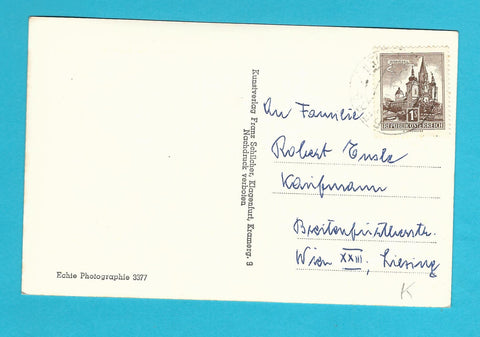 Kunstverlag Franz Schilcher, Klagenfurt, Kramerg. 9
Nachdruck verboten
REPUBLIK ÖSTERREICH
1S
An Familie
Robert
Kaufmann
Breitenfurtherstr.
Wien XXIII, Liesing
K
Echte Photographie 3377